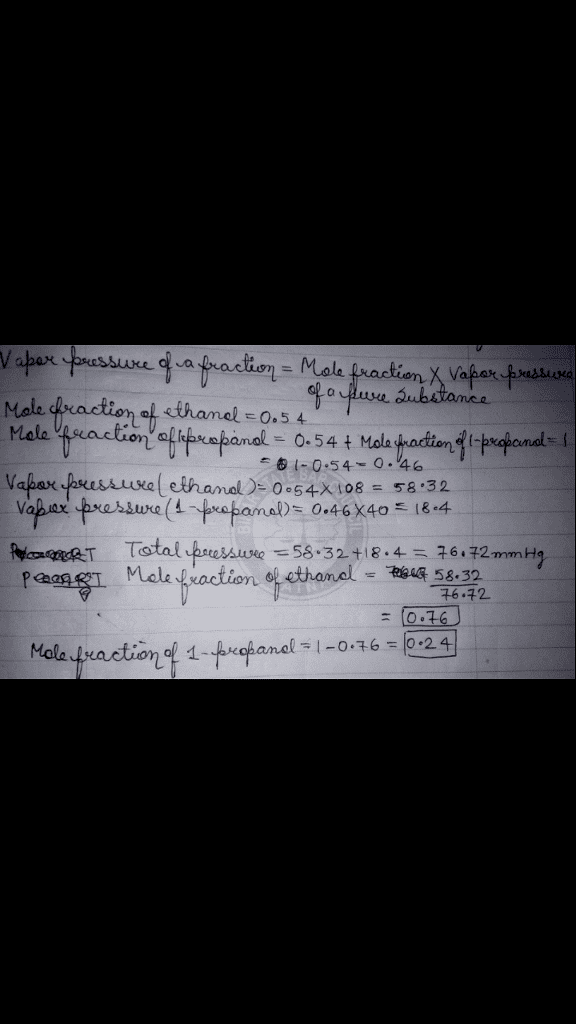 Vapor pressure of a fraction = Mole fraction X Vapor pressure
of a pure Substance
Mole fraction of ethanol = 0.54
Mole fraction of 1-propanol = 0.54 + Mole fraction of 1-propanol = 1
= 1-0.54 = 0.46
Vapor pressure (ethanol) = 0.54 X 108 = 58.32
Vapor pressure (1-propanol) = 0.46 X 40 = 18.4
Total pressure = 58.32 + 18.4 = 76.72 mm Hg
Mole fraction of ethanol = 58.32
76.72
= 0.76
Mole fraction of 1-propanol = 1-0.76 = 0.24